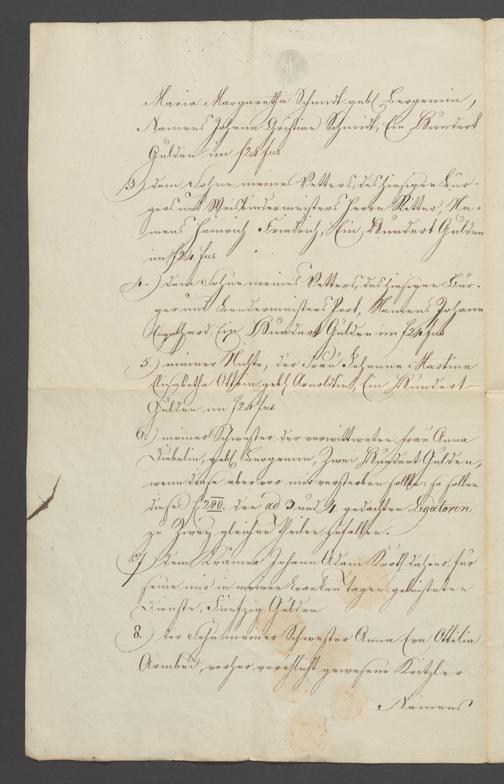 Maria Margaretha Schmidt geb. Bergemin,
Namens Johann Christian Schmidt, Ein Hundert
Gulden im f24 fus
3.) dem Sohne meines Vetters, des hiesigen Bür-
gers und Weisbindermeisters Herrn Ritter, Na-
mens Heinrich Friedrich, Ein Hundert Gulden
im f24 fus
4.) dem Sohne meines Vetters, des hiesigen Bür-
ger und Bendermeisters Port, Namens Johann
Ein Hundert Gulden im f24 fus
5.) meiner Nichte, der Frau Johanna Martina
Elisabetha geb. Ein Hundert
Gulden im f24 fus
6.) meiner Schwester der verwittweten Frau Anna
gebl. Bergemin, Zwei Hundert Gulden,
wenn diese aber vor mir versterben sollte: so sollen
diese f 200. den ad 3 und 4 gedachten Legatoren
zu Zwey gleichen Theilen zufallen.
7) dem Krämer Johann Adam dahier, für
seine mir in meinen kranken Tagen geleisteten
Dienste, Fünfzig Gulden
8.) der Sohn meiner Schwester Anna Eva Ottilia
vorher verehlicht gewesene
Namens